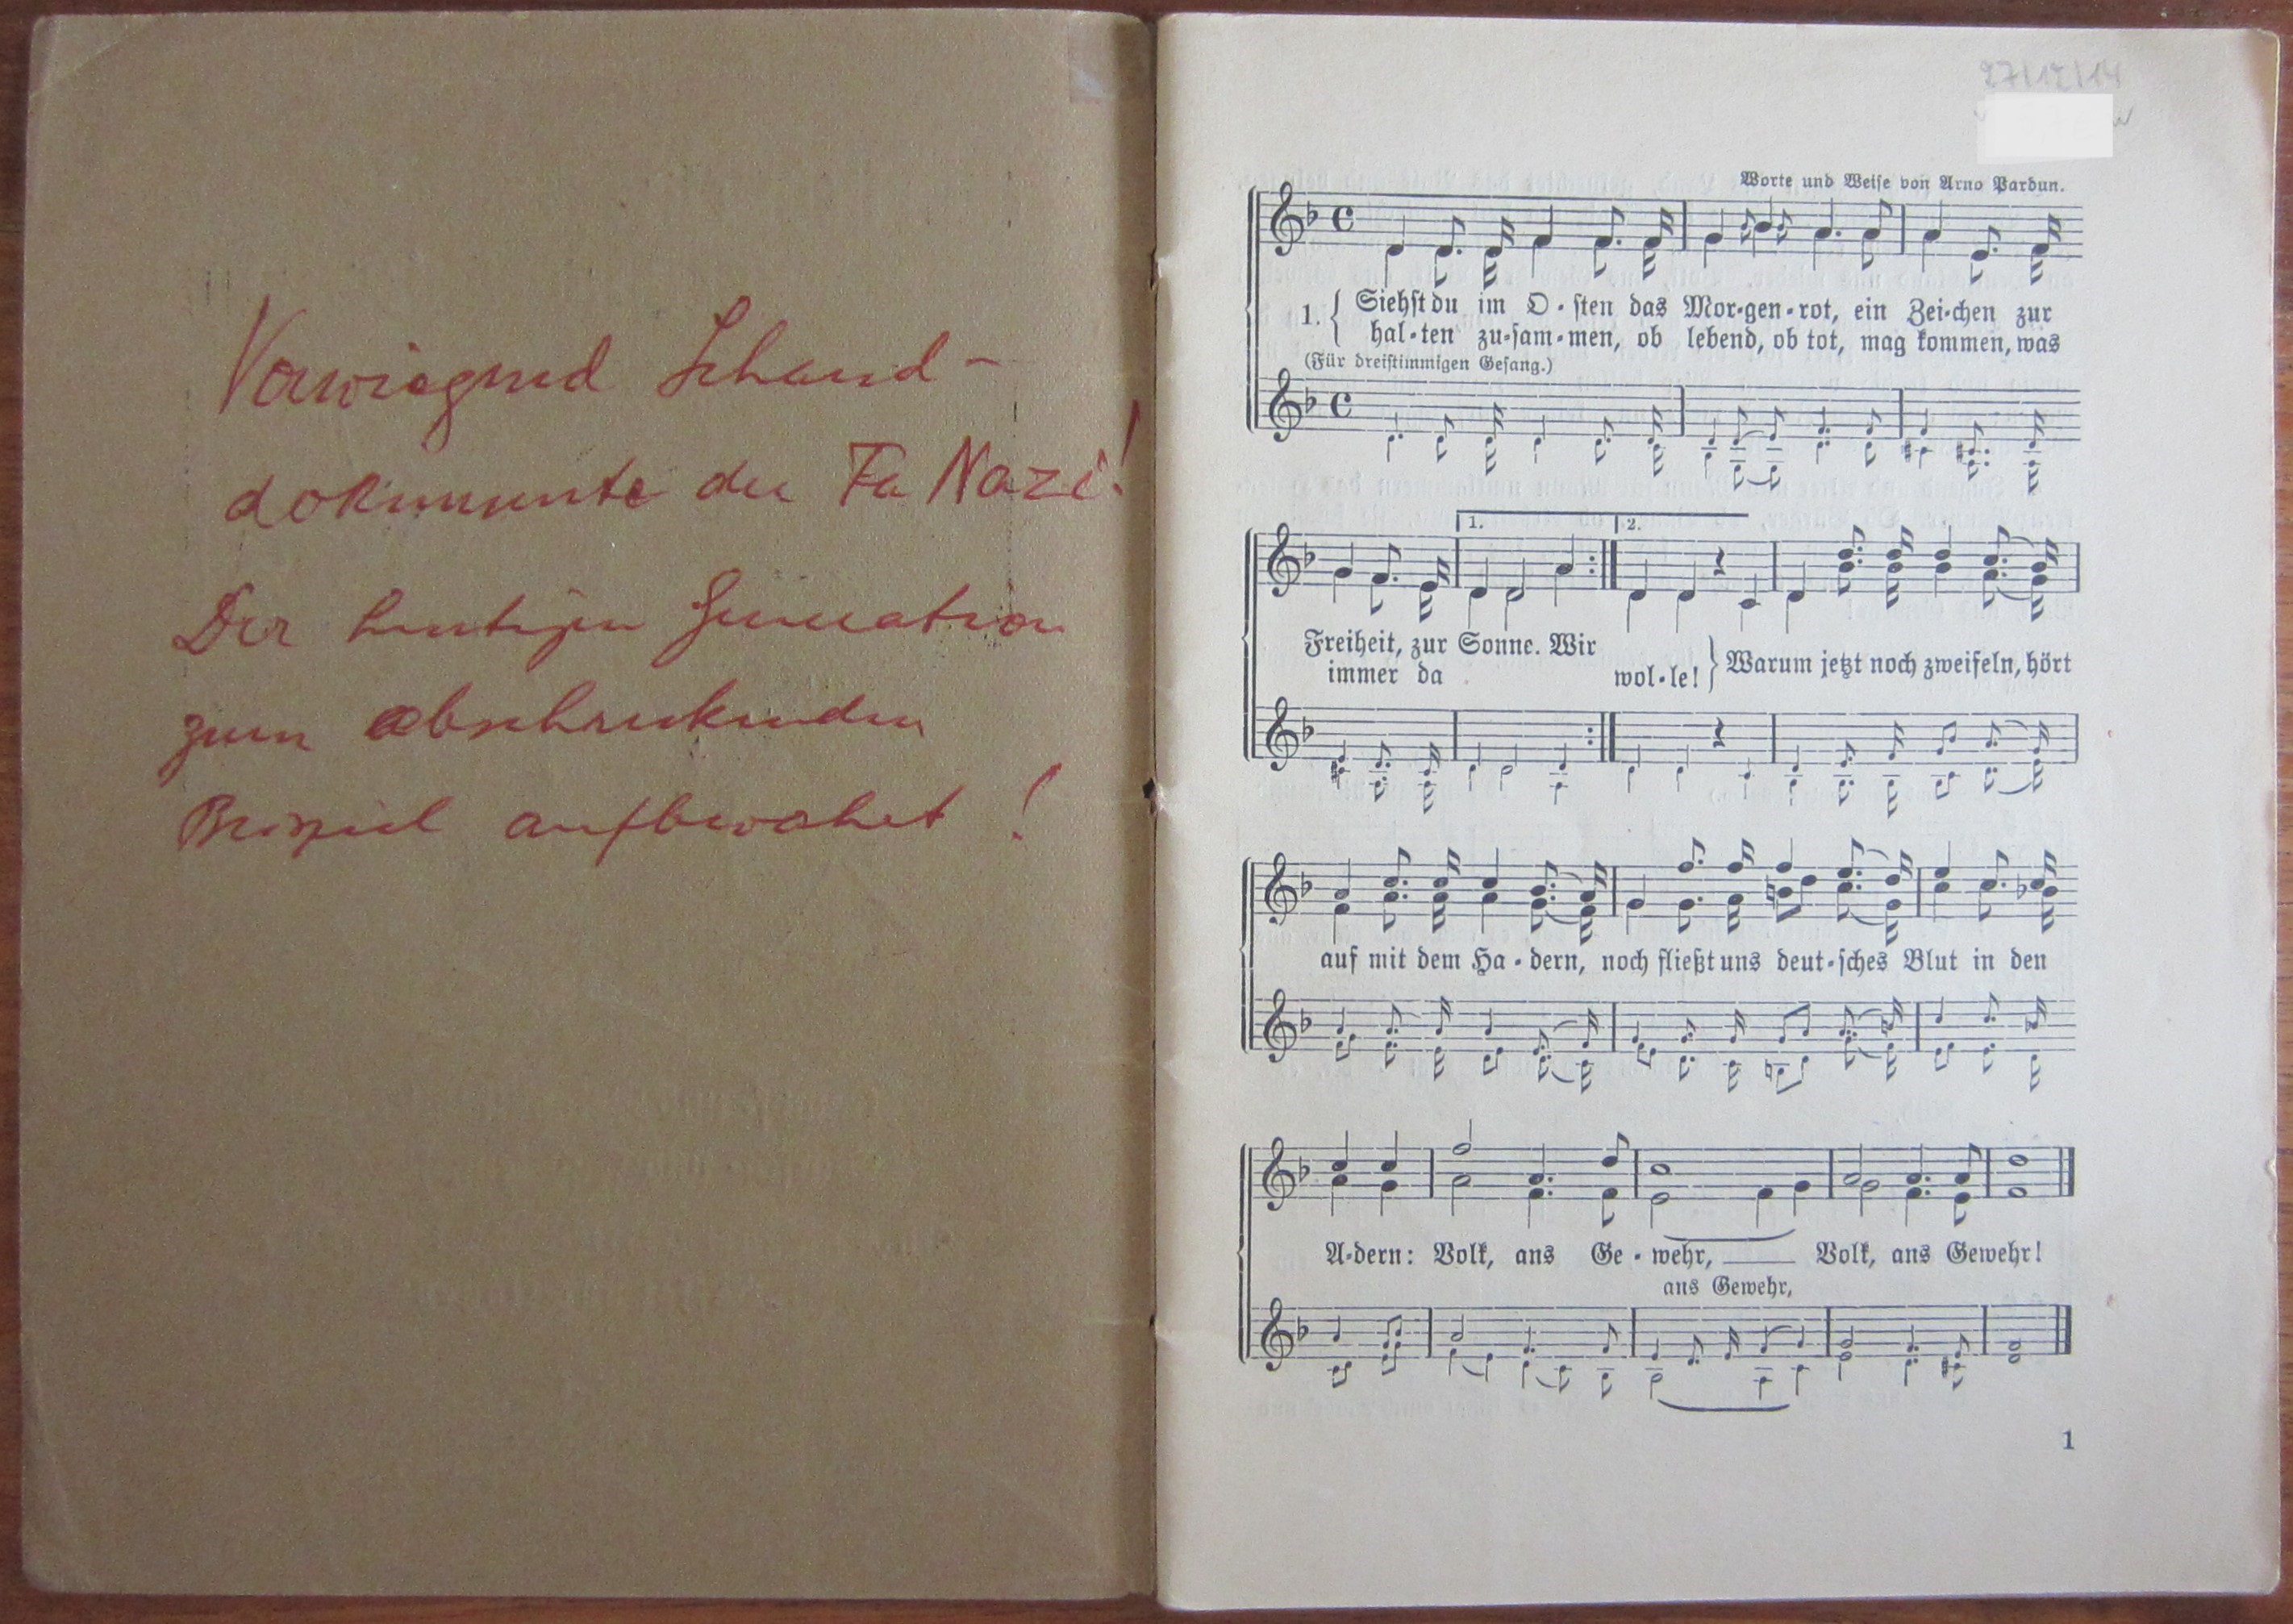 Vorwiegend Schand-
dokumente der Fa Nazi!
Der heutigen Generation
zum abschreckenden
Beispiel aufbewahrt!
27/12/14
Worte und Weise von Arno Pardun.
1. { Siehst du im O-sten das Mor-gen-rot, ein Zei-chen zur
hal-ten zu-sam-men, ob lebend, ob tot, mag kommen, was
(Für dreistimmigen Gesang.)
1. 2.
Freiheit, zur Sonne. Wir
immer da wol-le! } Warum jetzt noch zweifeln, hört
auf mit dem Ha-dern, noch fließt uns deut-sches Blut in den
A-dern: Volk, ans Ge-wehr, Volk, ans Gewehr!
ans Gewehr,
1